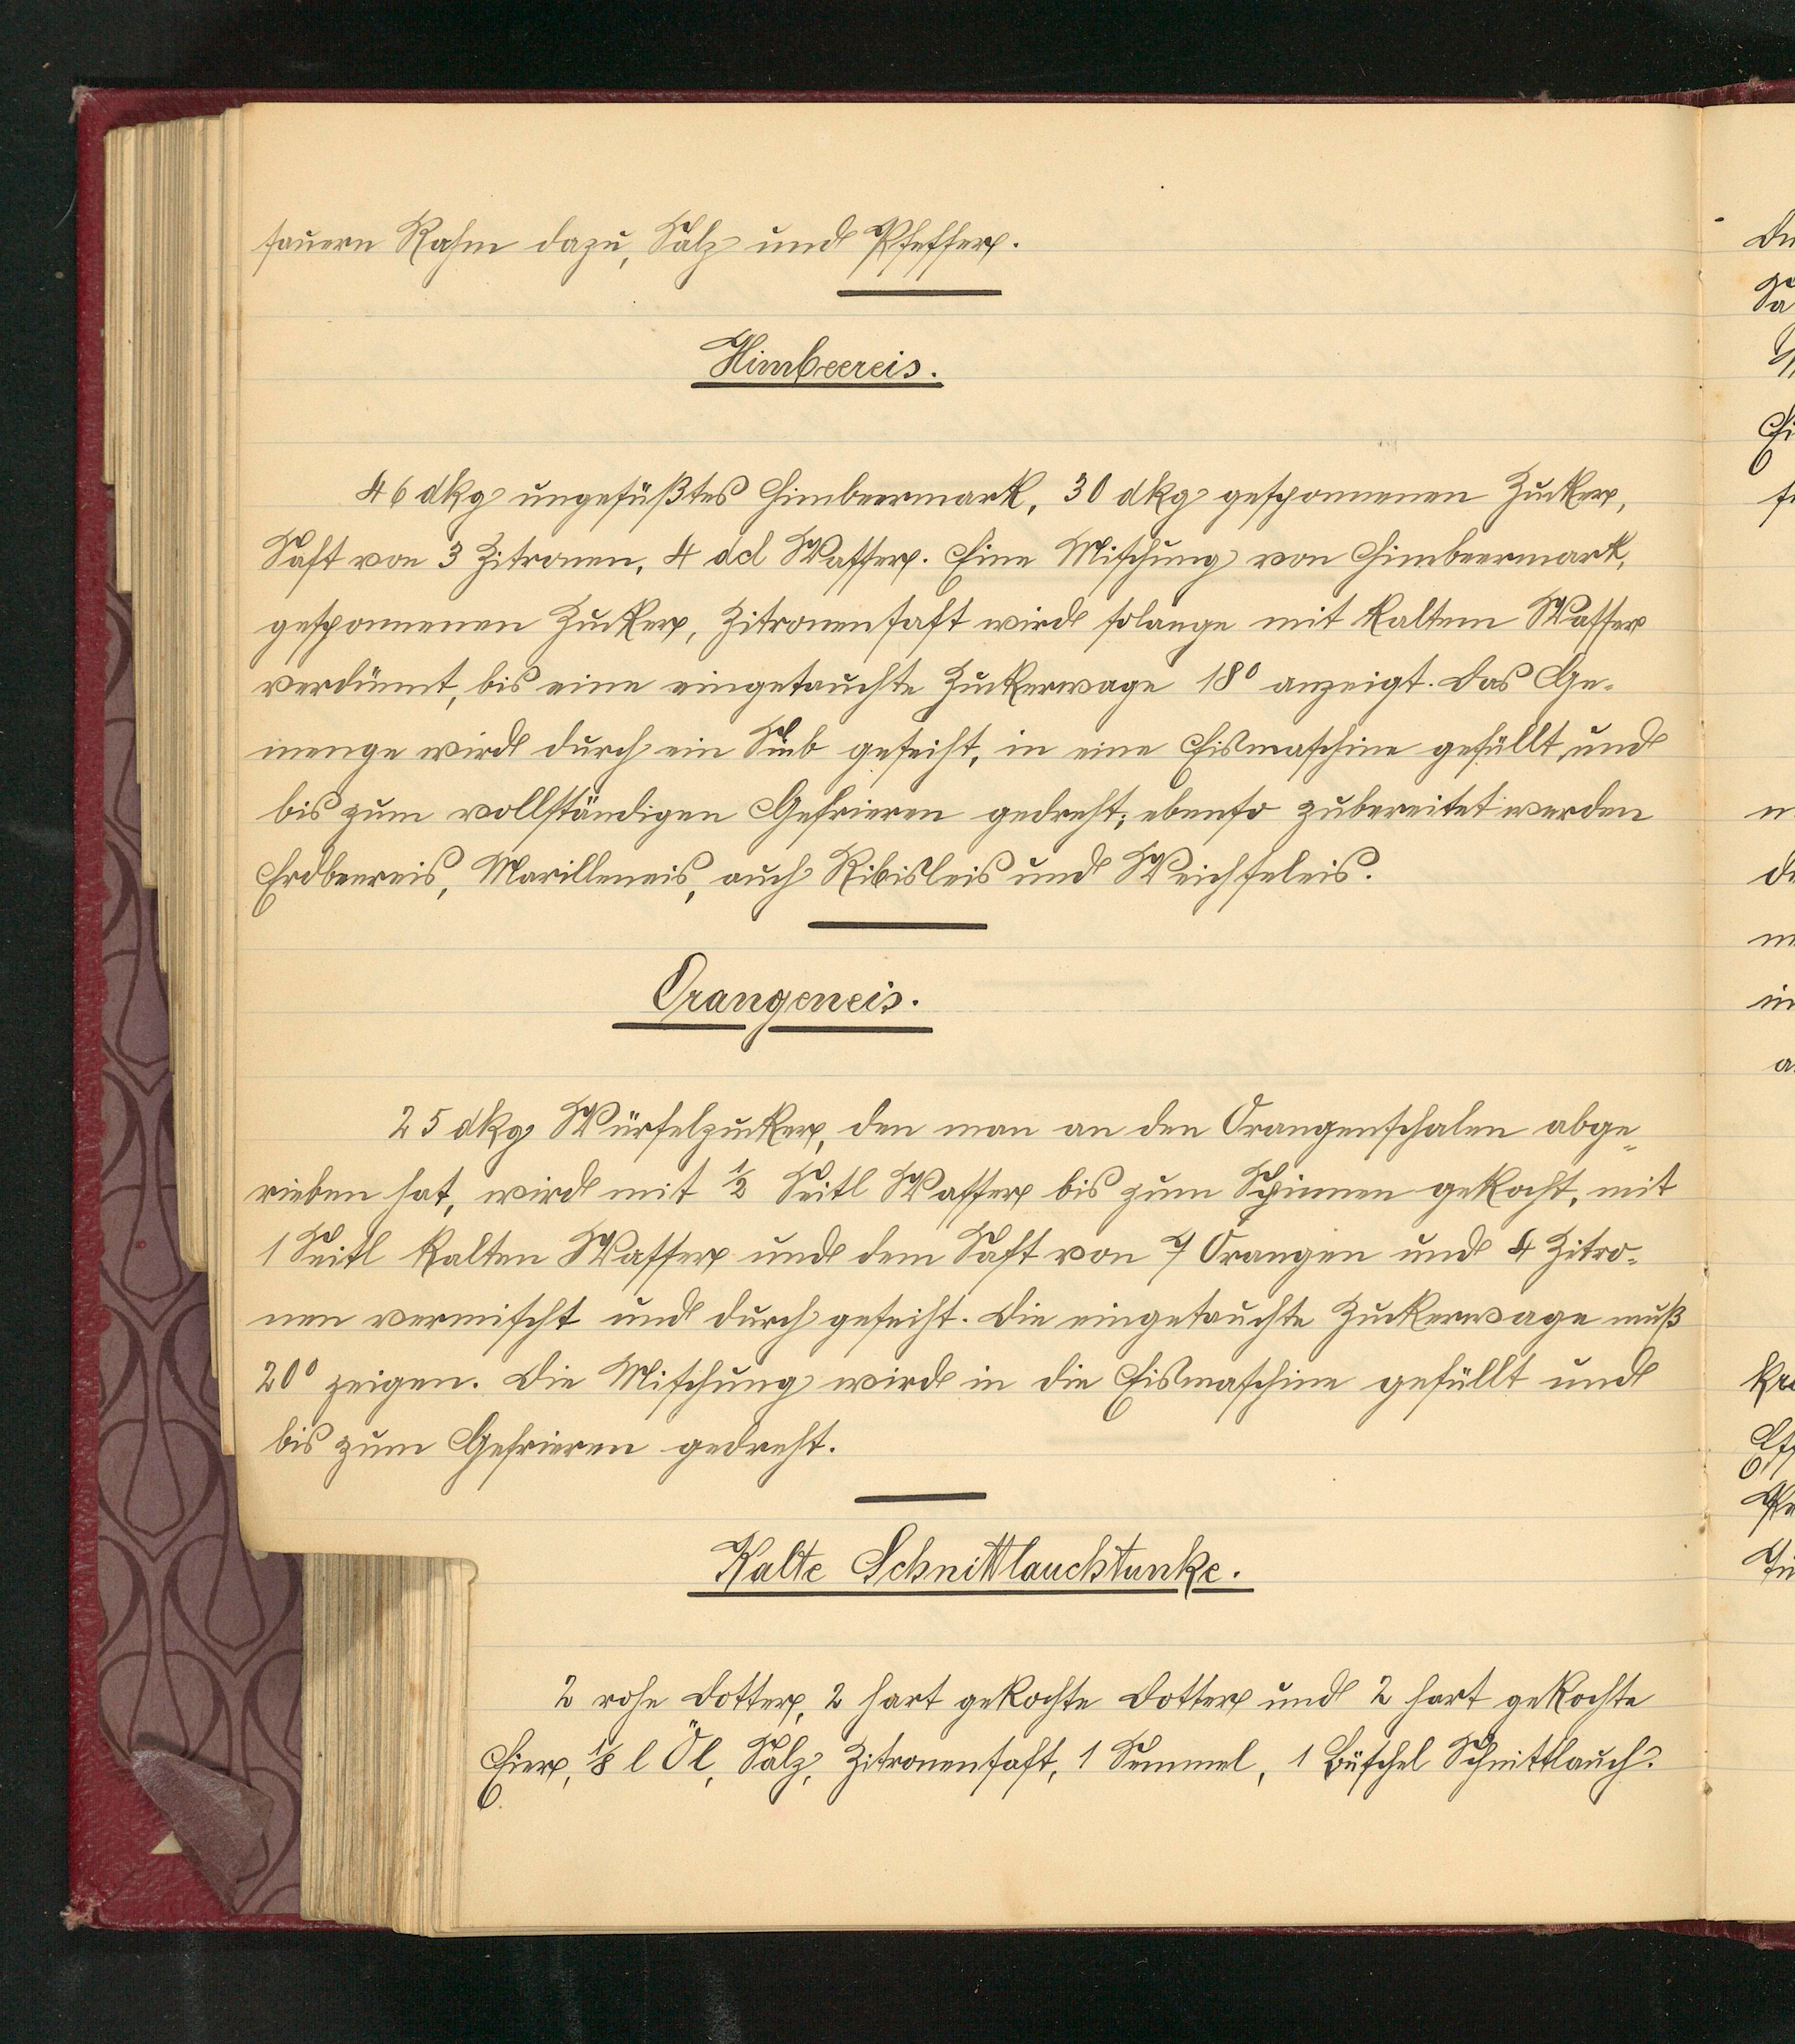 sauern Rahm dazu, Salz und Pfeffer.
Himbeereis.
46 dkg ungesüßtes Himbeermark, 30 dkg gesponnenen Zucker,
Saft von 3 Zitronen, 4 dcl Wasser. Eine Mischung von Himbeermark,
gesponnenen Zucker, Zitronensaft wird solange mit kaltem Wasser
verdünnt, bis eine eingetauchte Zuckerwage 18° anzeigt. Das Ge-
menge wird durch ein Sieb geseiht, in eine Eismaschine gefüllt und
bis zum vollständigen Gefrieren gedreht; ebenso zubereitet werden
Erdbeereis, Marilleneis, auch Ribisleis und Weichseleis.
Orangeneis.
25 dkg Würfelzucker, den man an den Orangenschalen abge-
rieben hat, wird mit ½ Seitl Wasser bis zum Spinnen gekocht, mit
1 Seitl kalten Wasser und dem Saft von 7 Orangen und 4 Zitro-
nen vermischt und durch geseiht. Die eingetauchte Zuckerwage muß
20° zeigen. Die Mischung wird in die Eismaschine gefüllt und
bis zum Gefrieren gedreht.
Kalte Schnittlauchtunke.
2 rohe Dotter, 2 hart gekochte Dotter und 2 hart gekochte
Eier, ⅛ l Öl, Salz, Zitronensaft, 1 Semmel, 1 Büschel Schnittlauch.